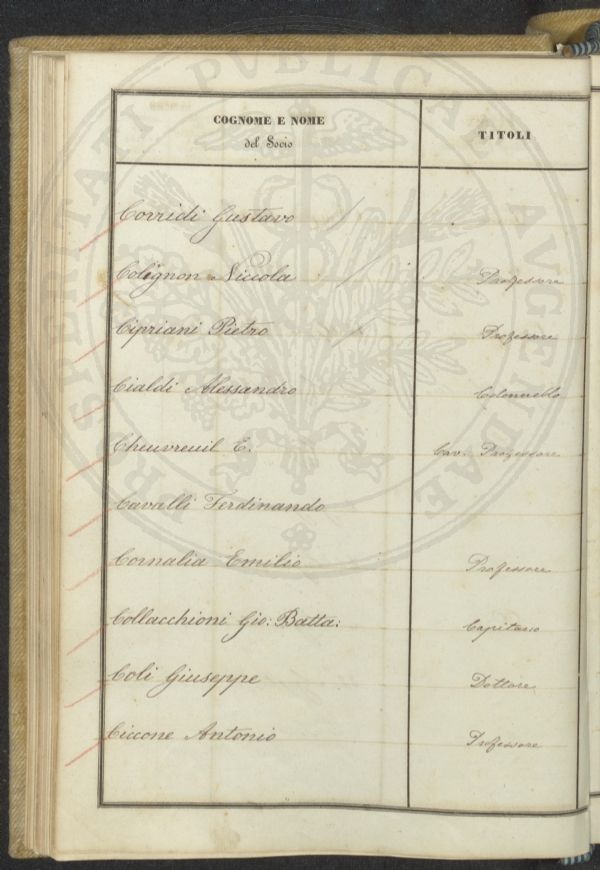 COGNOME E NOME
del Socio
TITOLI
Corridi Gustavo
Colignon Niccola Professore
Cipriani Pietro Professore
Cialdi Alessandro Colonnello
Cheuvreuil E. Cav. Professore
Cavalli Ferdinando
Cornalia Emilio Professore
Collacchioni Gio: Batta: Capitano
Coli Giuseppe Dottore
Ciccone Antonio Professore
PROSPERITATI PUBLICAE AUGENDAE